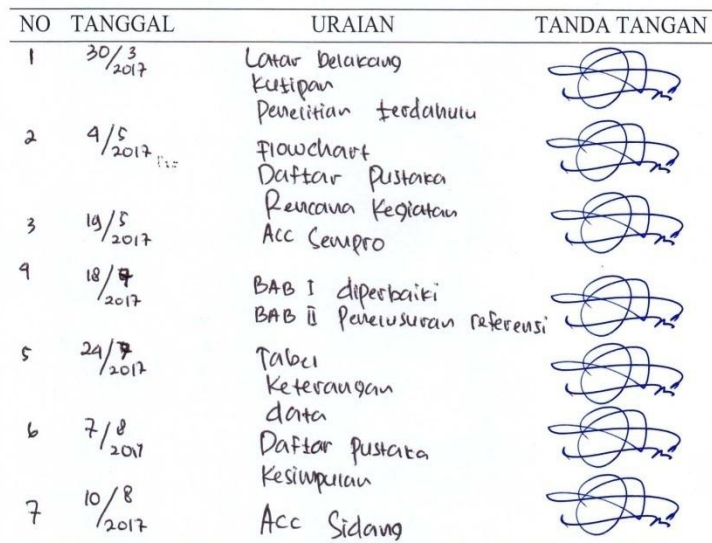 NO TANGGAL URAIAN TANDA TANGAN
1 30/3 2017 Latar belakang
Kutipan
Penelitian terdahulu
2 4/5 2017 Flowchart
Daftar Pustaka
Rencana Kegiatan
3 19/5 2017 Acc Sempro
4 18/7 2017 BAB I diperbaiki
BAB II Penelusuran referensi
5 24/7 2017 Tabel
Keterangan
data
6 7/8 2017 Daftar Pustaka
Kesimpulan
7 10/8 2017 Acc Sidang